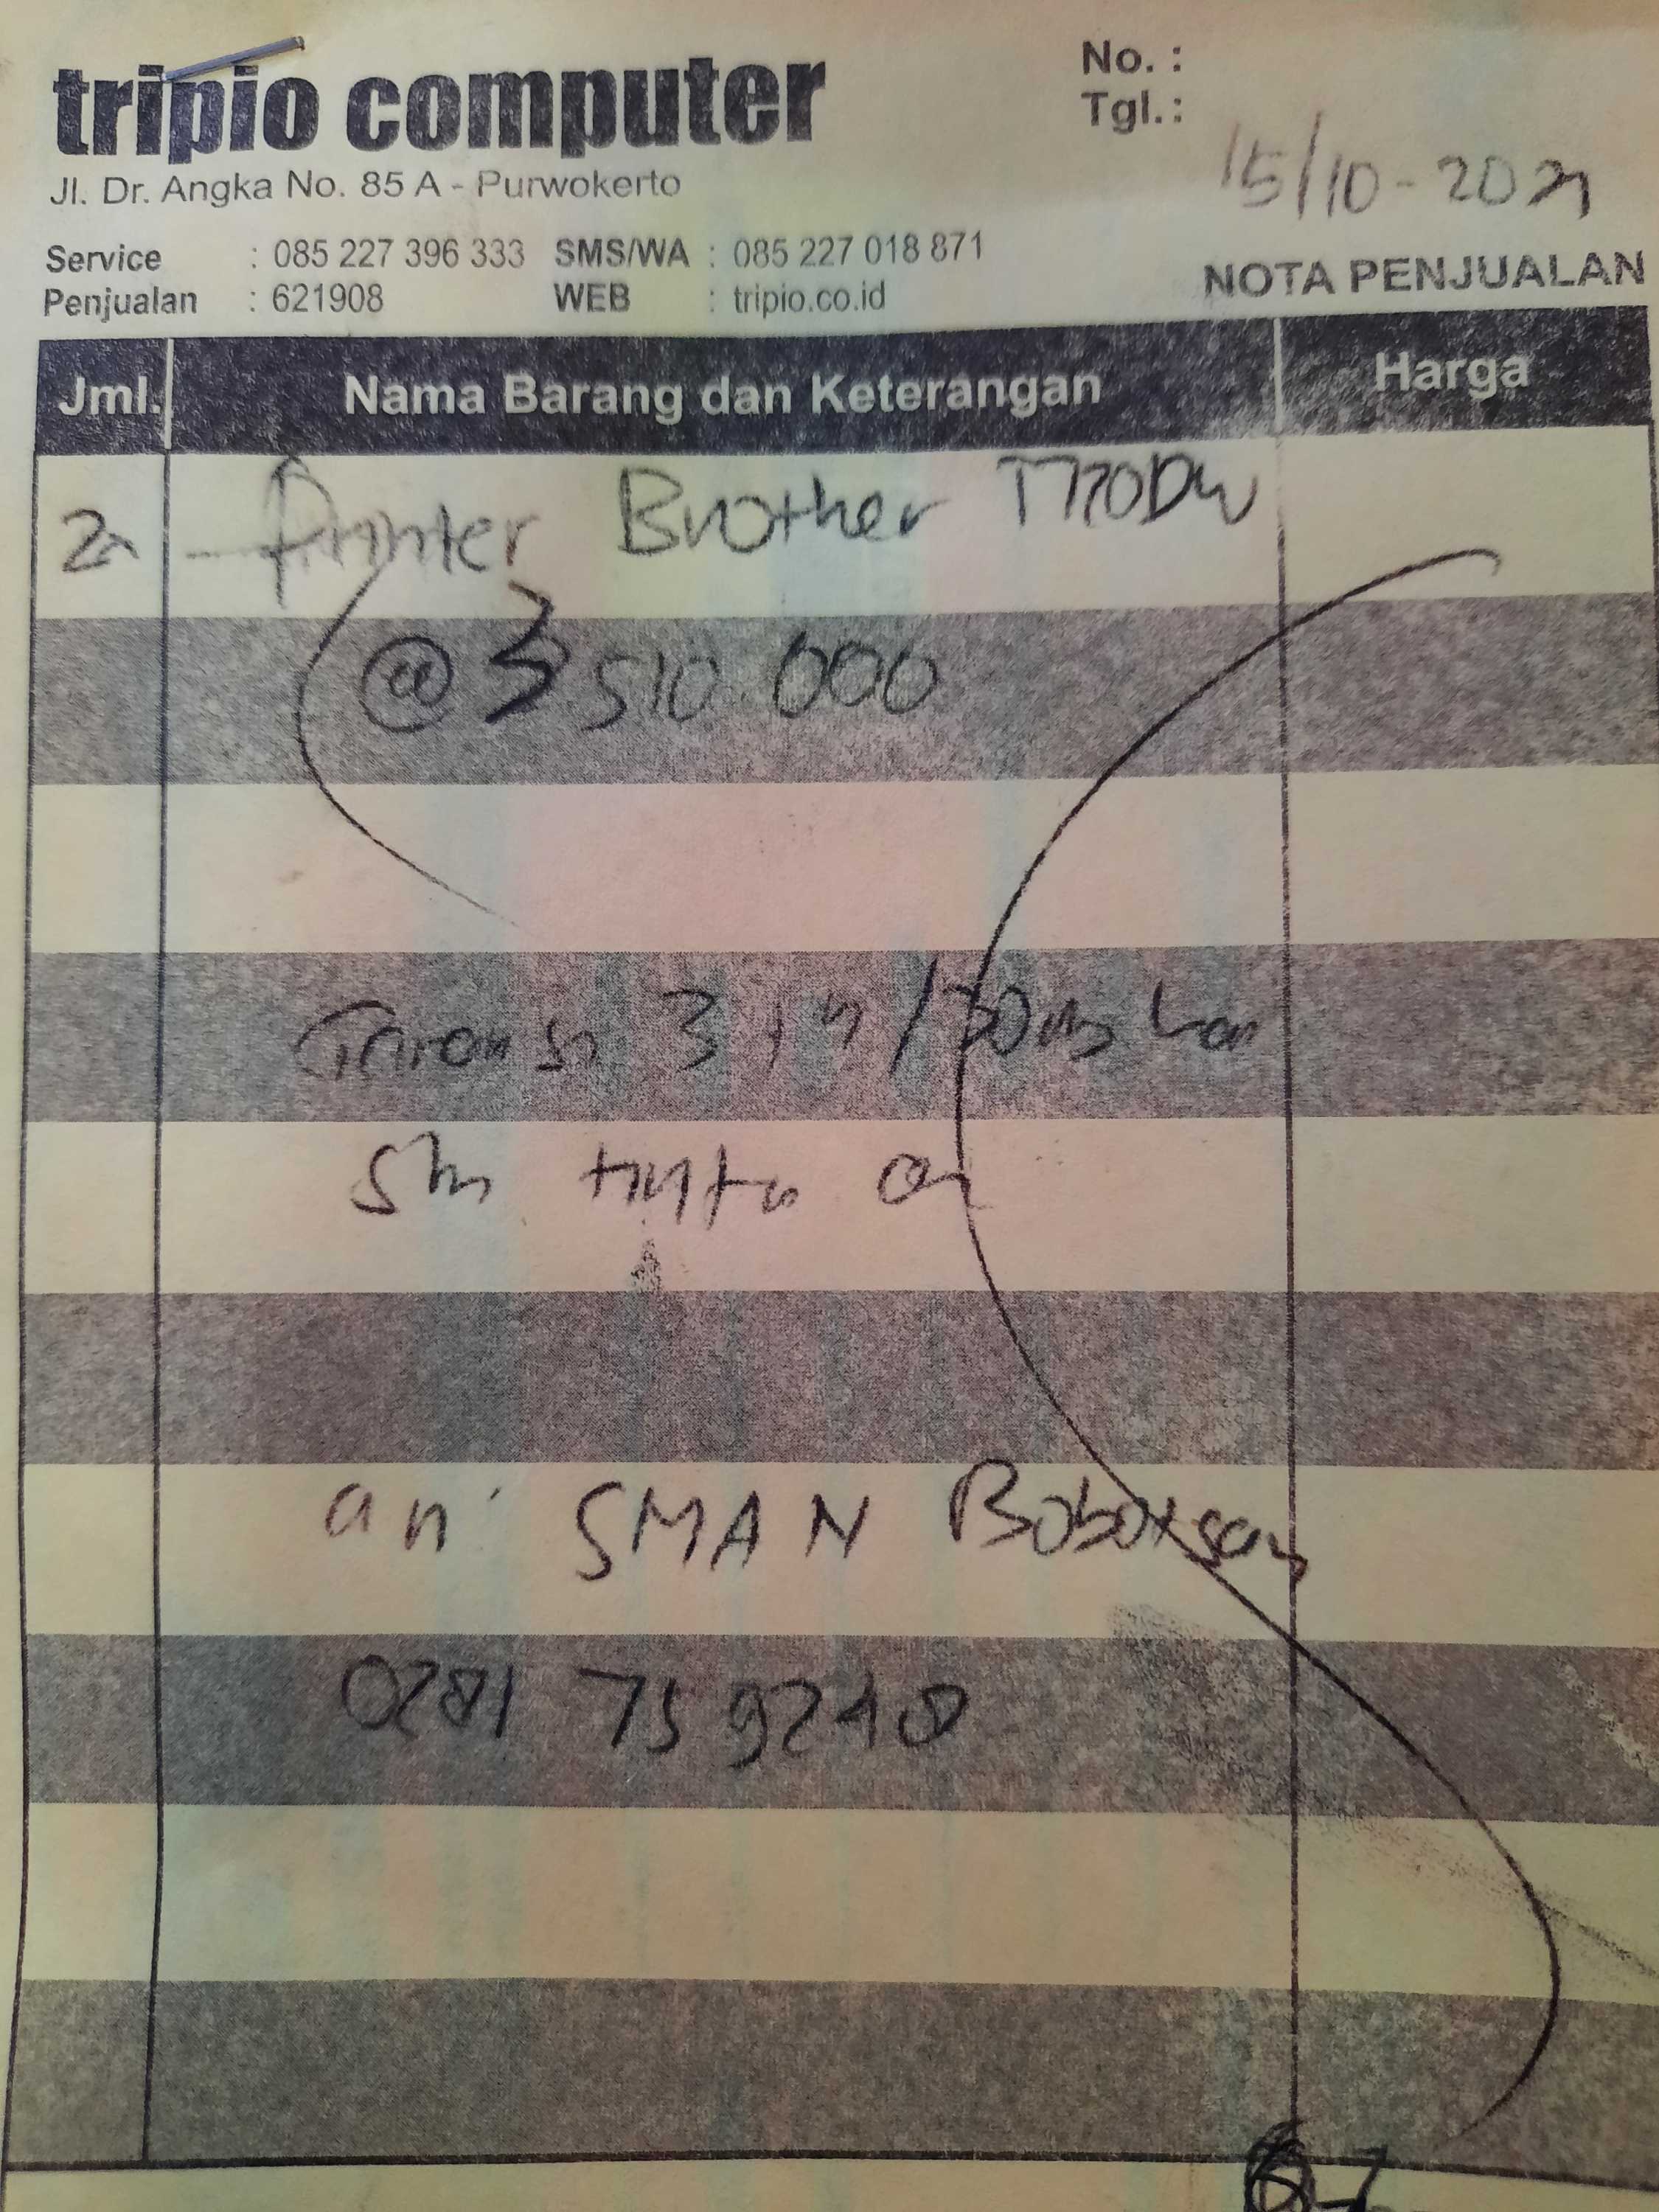 tripio computer
No. :
Tgl. :
15/10-2021
Jl. Dr. Angka No. 85 A - Purwokerto
Service : 085 227 396 333 SMS/WA : 085 227 018 871
Penjualan : 621908 WEB : tripio.co.id
NOTA PENJUALAN
Jml. Nama Barang dan Keterangan Harga
2 Printer Brother T720DW
@ 3 510.000
3 th /
tinta
an. SMAN Bobotsari
0281 759248